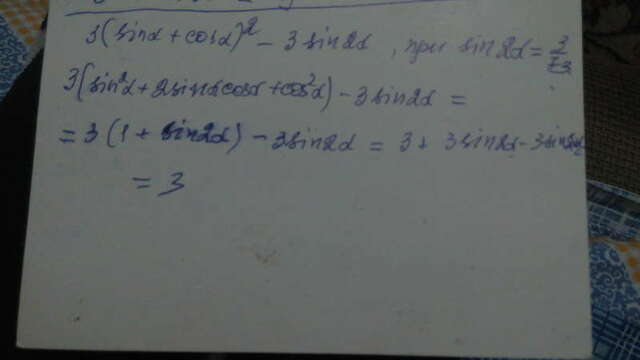 3(sinα + cosα)² − 3 sin2α , при sin2α =
3(sin²α + 2sinα cosα + cos²α) − 3 sin2α =
= 3 (1 + sin2α) − 3sin2α = 3 + 3sin2α − 3sin2α
= 3